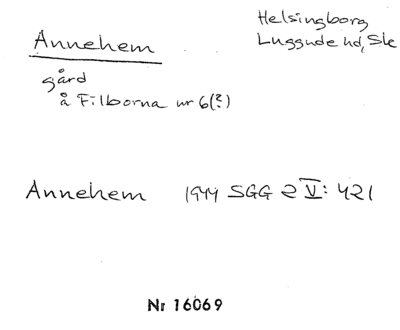 Helsingborg
Luggude hd, Sk
Annehem
gård
å Filborna nr 6(?)
Annehem 1944 SGG 2 V: 421
Nr 16069